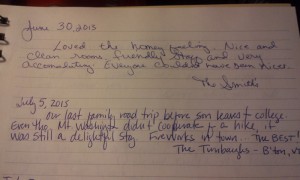 June 30, 2015
Loved the homey feeling. Nice and
clean rooms, friendly staff and very
accomodating. Everyone could not have been nicer.
The Smiths
July 5, 2015
Our last family road trip before son leaves for college.
Even tho Mt Washington didn't cooperate for a hike, it
was still a delightful stay. Fireworks in town... The BEST!
The Turnbaughs - B'ton, V
July